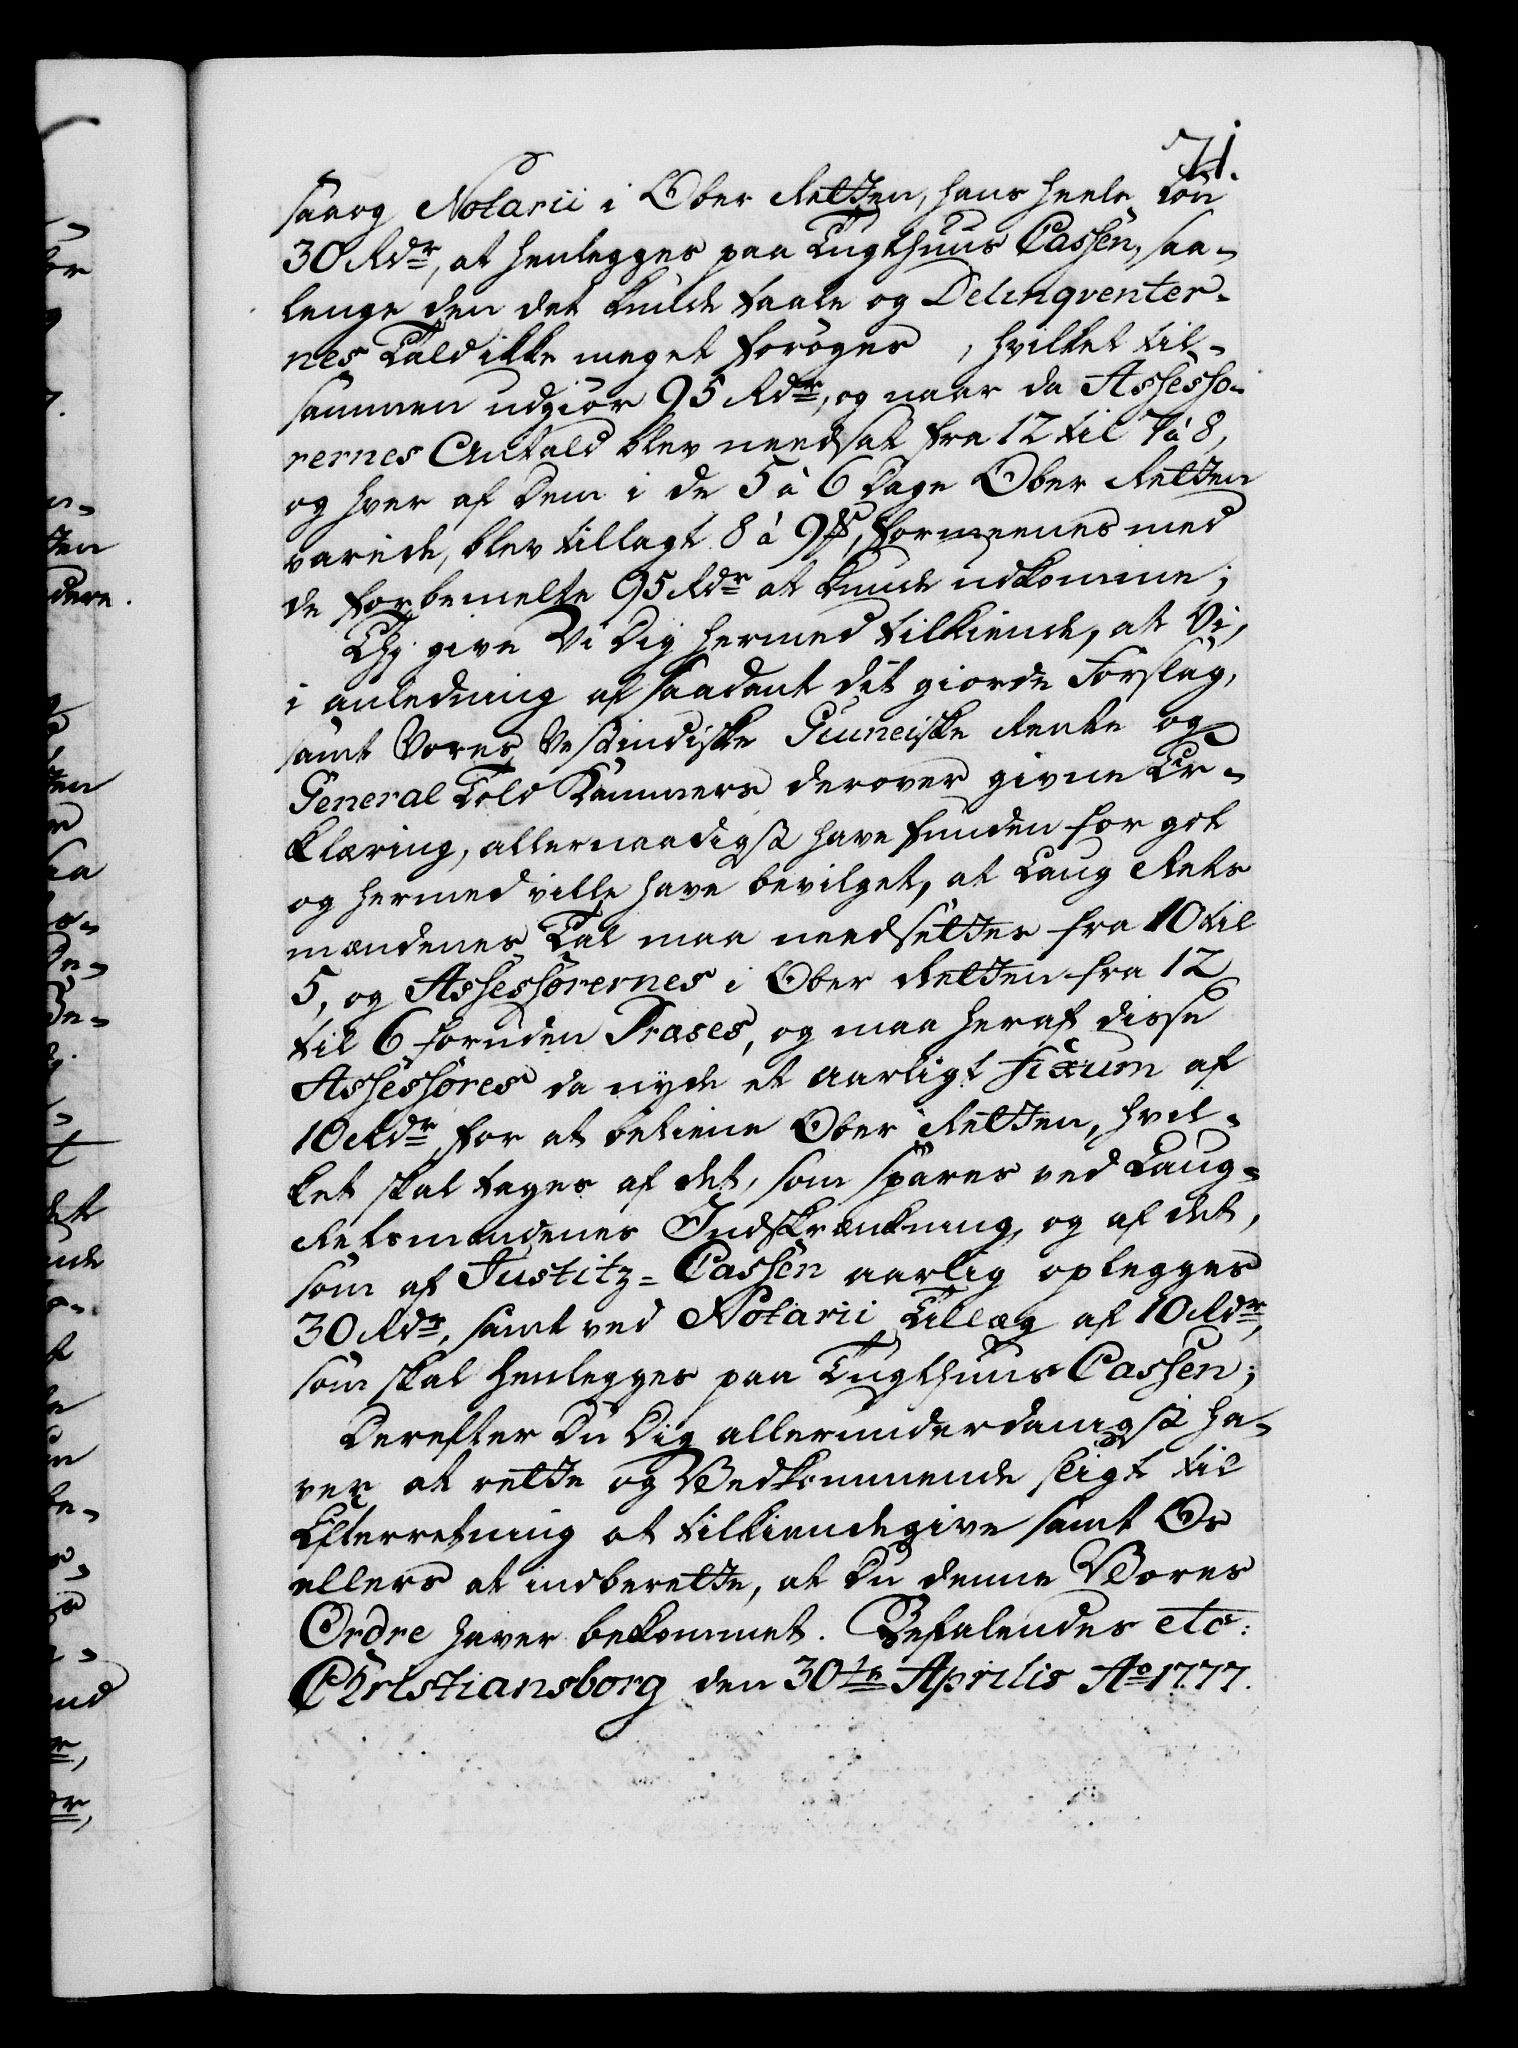 71.
saaog Notarii i Ober Retten, hans heele Løn
30 Rdr, at henlegges paa Tugthuus Cassen, saa-
lenge den det kunde taale og Delinqventer-
nes Tald ikke meget forøges, hvilket til-
sammen udgiør 95 Rdr, og naar da Assesso-
rernes Antald blev needsat fra 12 til 7 à 8,
og hver af Dem i de 5 à 6 Dage Ober Retten
varede, blev tillagt 8 à 9 ß, formeenes med
de forbemelte 95 Rdr at kunde udkomme;
Thj give Vi Dig hermed tilkiende, at Vi,
i anledning af saadant dit giorde Forslag,
samt Vores Vestindiske Guineiske Rente og
General Told Kammers derover givne Er-
klæring, allernaadigst have funden for got
og hermed ville have bevilget, at Laug Rets
mændenes Tal maa needsettes fra 10 til
5, og Assessorernes i Ober Retten fra 12
til 6 foruden Præses, og maa heraf disse
Assessores da nyde et aarligt Fixum af
10 Rdr for at betiene Ober Retten, hvil-
ket skal tages af det, som spares ved Laug-
Retsmændenes Indskrænkning, og af det,
som af Justitz-Cassen aarlig oplegges
30 Rdr, samt ved Notarii Tillæg af 10 Rdr,
som skal henlegges paa Tugthuus Cassen;
Derefter Du Dig allerunderdanigst ha-
ver at rette og Vedkommende sligt til
Efterretning at tilkiendegive samt Os
ellers at indberette, at Du denne Vores
Ordre haver bekommet. Befalendes etc:
Christiansborg den 30te Aprilis Ao 1777.